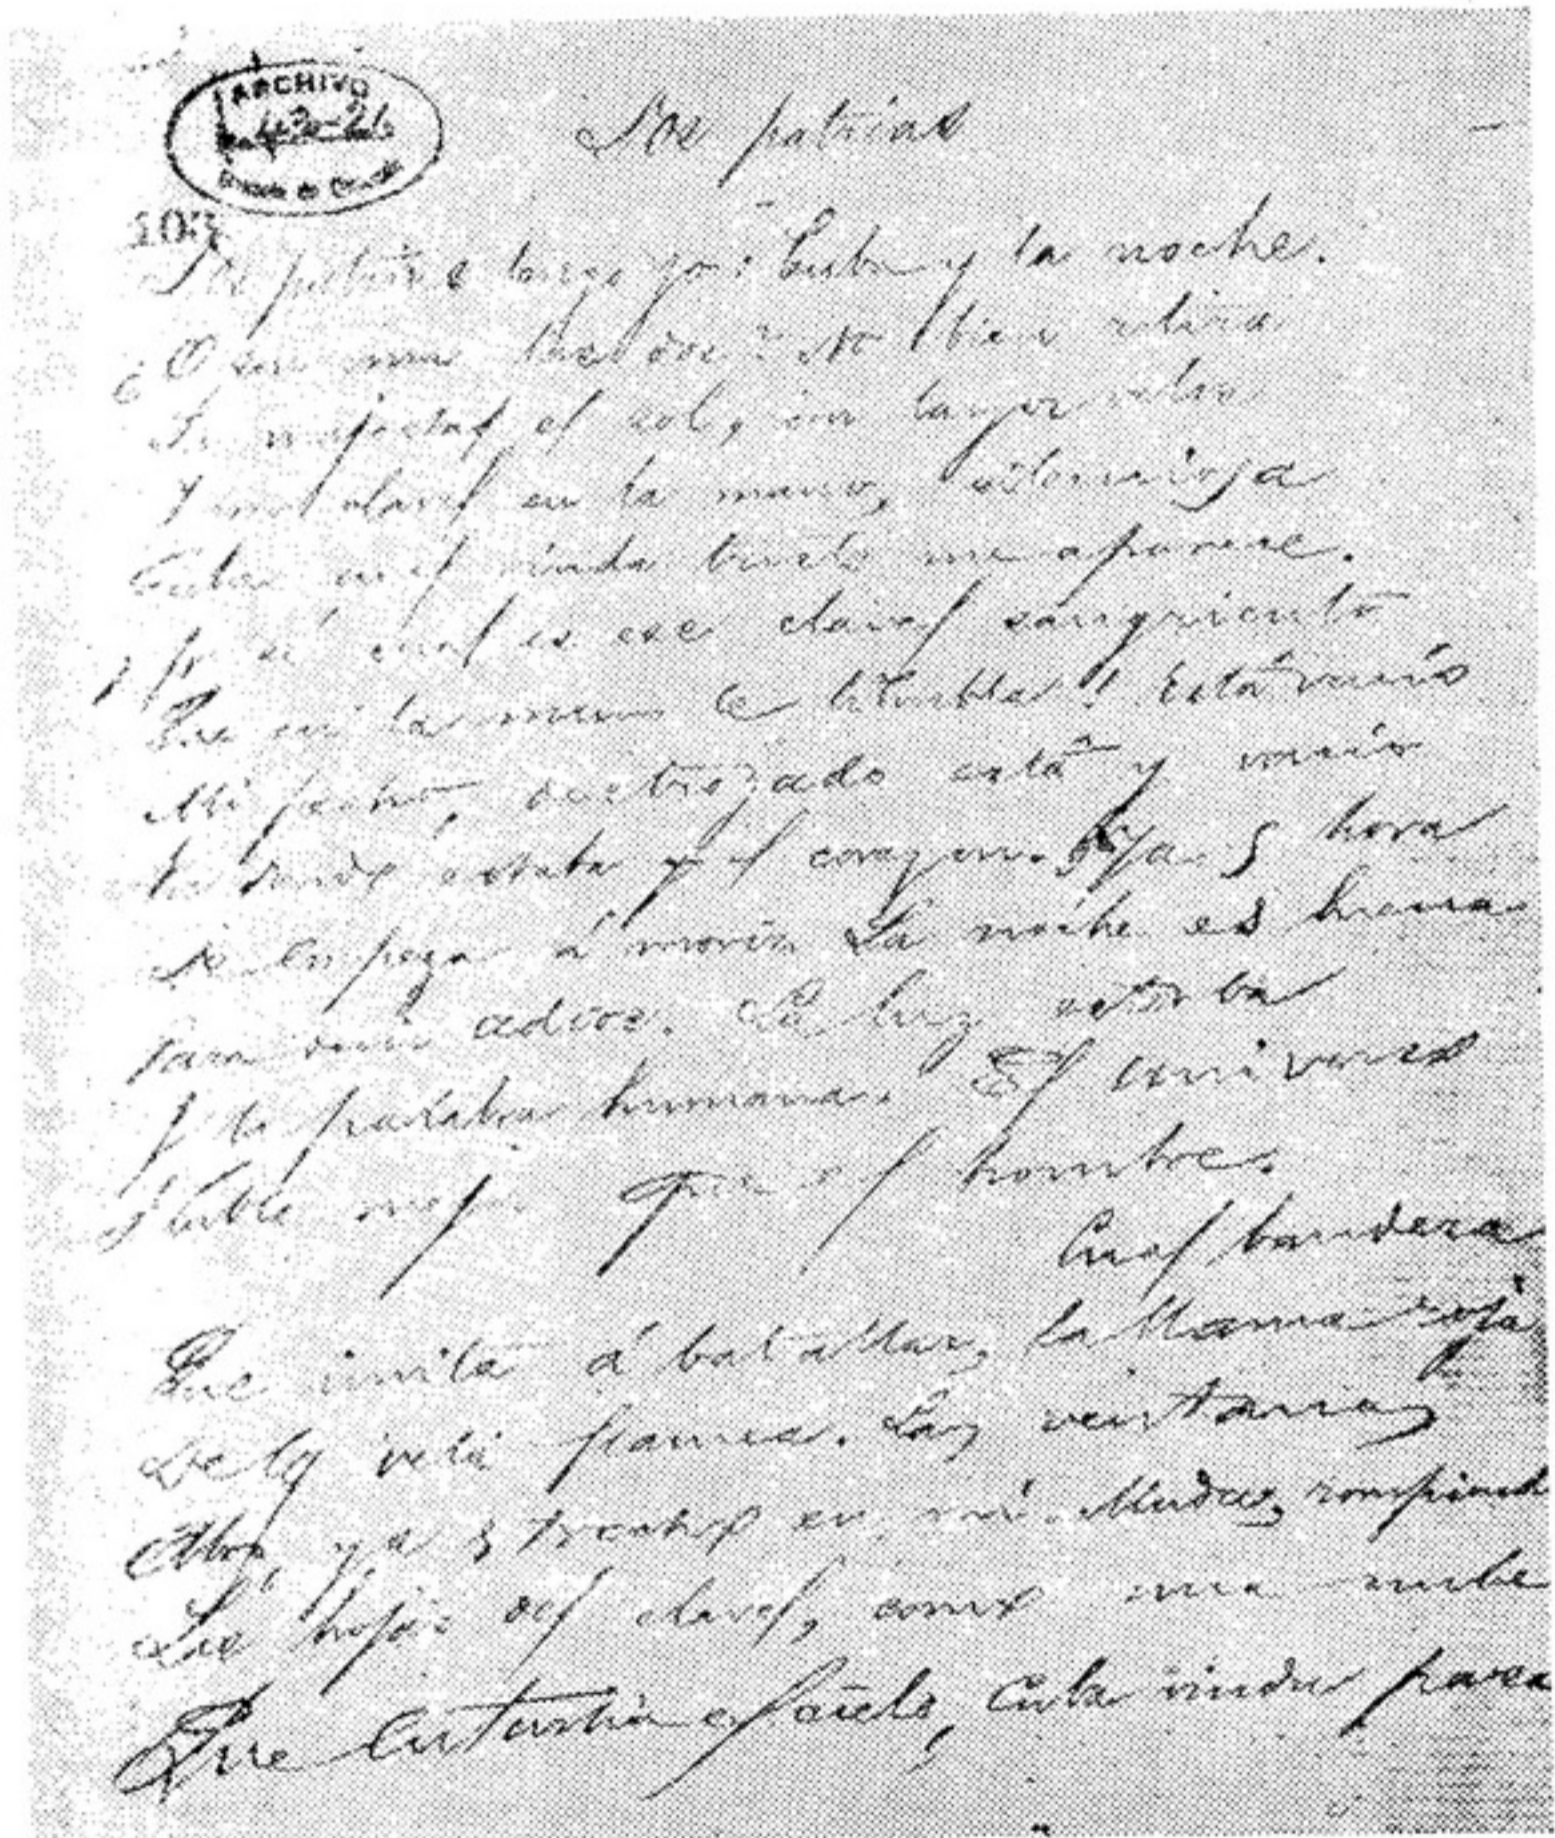 ARCHIVO
430-26
103
Dos patrias
Dos patrias tengo yo: Cuba y la noche.
¿O son una las dos? No bien retira
Su majestad el sol, con largos velos
Y un clavel en la mano, silenciosa
Cuba cual viuda triste me aparece.
¡Yo sé cuál es ese clavel sangriento
Que en la mano le tiembla! Está vacío
Mi pecho, destrozado está y vacío
En donde estaba el corazon. Ya es hora
De empezar á morir. La noche es buena
Para decir adios. La luz estorba
Y la palabra humana. El universo
Habla mejor que el hombre.
Cual bandera
Que invita á batallar, la llama roja
De la vela flamea. Las ventanas
Abro, ya estrecho en mí. Muda, rompiendo
Las hojas del clavel, como una nube
Que enturbia el cielo, Cuba viuda pasa